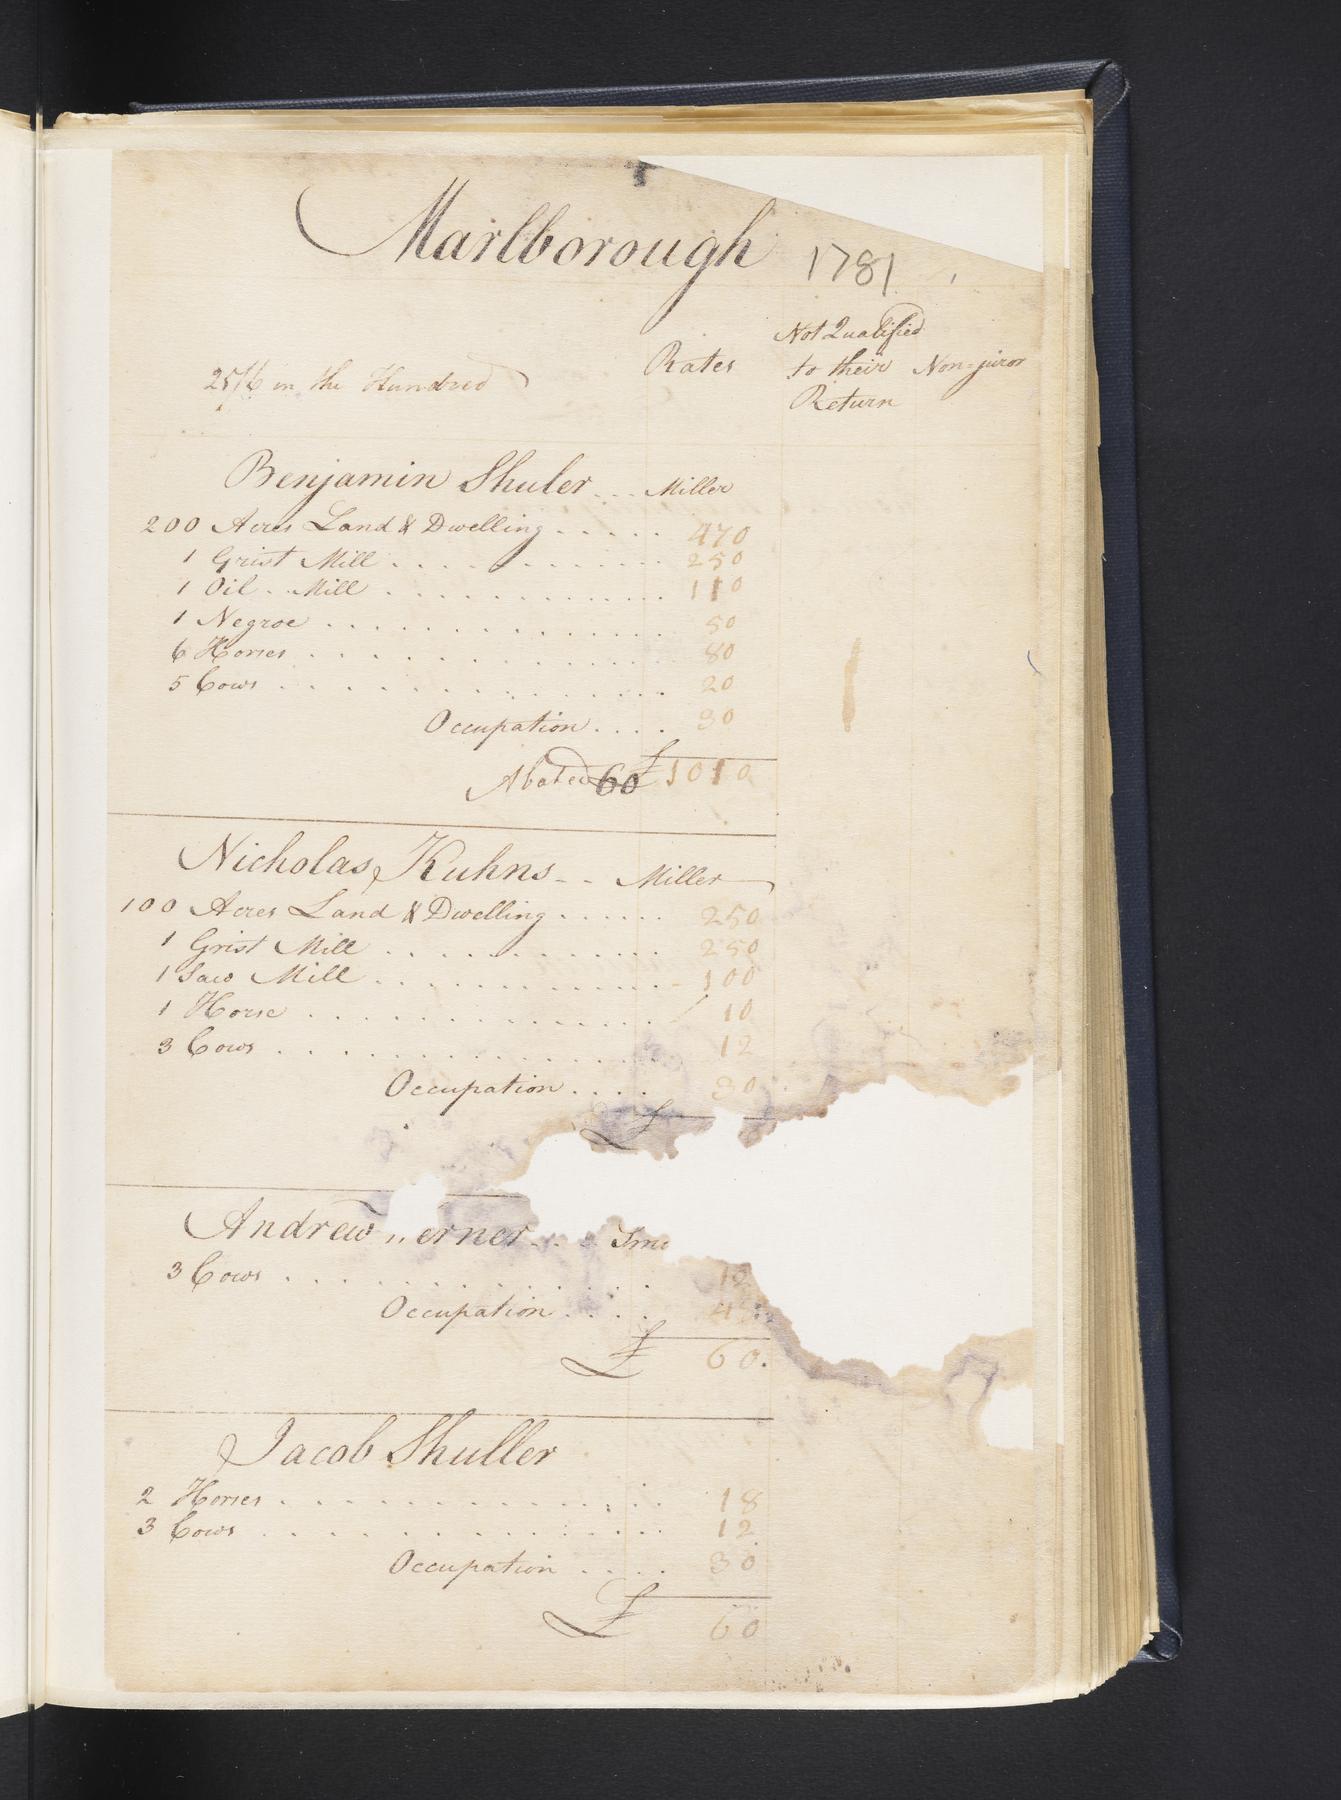 Marlborough 1781
Not Qualified
Rates to their Non-juror
25/6 in the Hundred
Return
Benjamin Shuler... Miller
200 Acres Land & Dwelling ..... 470
1 Grist Mill ............ 250
1 Oil Mill ............ 110
1 Negroe ............ 50
6 Horses ............ 80
5 Cows ............ 20
Occupation .... 30
Abated 60 £ 1010
Nicholas Kuhns -- Miller
100 Acres Land & Dwelling ...... 250
1 Grist Mill ............ 250
1 Saw Mill ............ 100
1 Horse ............ 10
3 Cows ............ 12
Occupation .... 30
£
Andrew erner...
3 Cows ............ 12
Occupation .... 4
£ 60.
Jacob Shuller
2 Horses ............ 18
3 Cows ............ 12
Occupation .... 30
£ 60